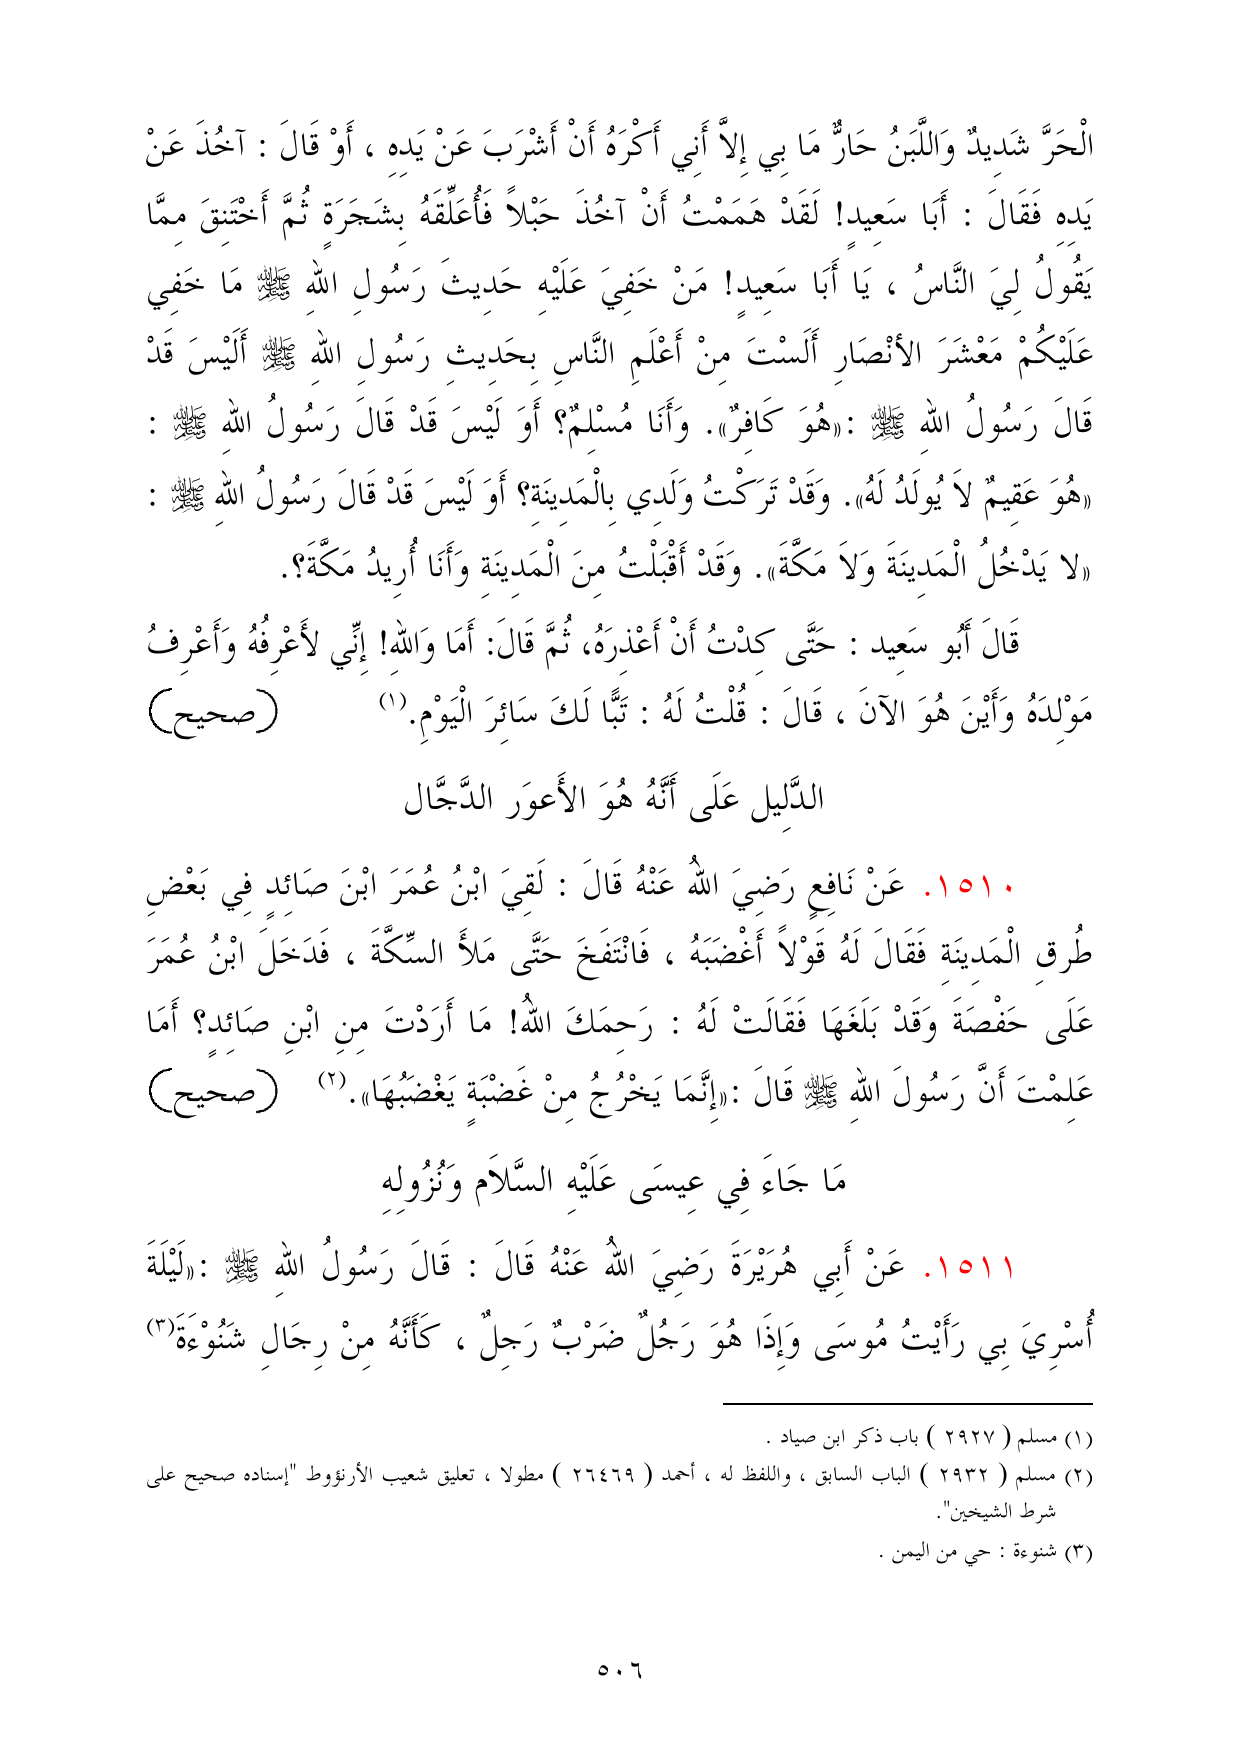 الْحَرَّ شَدِيدٌ وَاللَّبَنُ حَارٌّ مَا بِي إِلاَّ أَنِي أَكْرَهُ أَنْ أَشْرَبَ عَنْ يَدِهِ ، أَوْ قَالَ : آخُذَ عَنْ
يَدِهِ فَقَالَ : أَبَا سَعِيدٍ! لَقَدْ هَمَمْتُ أَنْ آخُذَ حَبْلاً فَأُعَلِّقَهُ بِشَجَرَةٍ ثُمَّ أَخْتَنِقَ مِمَّا
يَقُولُ لِيَ النَّاسُ ، يَا أَبَا سَعِيدٍ! مَنْ خَفِيَ عَلَيْهِ حَدِيثَ رَسُولِ اللهِ ﷺ مَا خَفِي
عَلَيْكُمْ مَعْشَرَ الأنْصَارِ أَلَسْتَ مِنْ أَعْلَمِ النَّاسِ بِحَدِيثِ رَسُولِ اللهِ ﷺ أَلَيْسَ قَدْ
قَالَ رَسُولُ اللهِ ﷺ :«هُوَ كَافِرٌ». وَأَنَا مُسْلِمٌ؟ أَوَ لَيْسَ قَدْ قَالَ رَسُولُ اللهِ ﷺ :
«هُوَ عَقِيمٌ لاَ يُولَدُ لَهُ». وَقَدْ تَرَكْتُ وَلَدِي بِالْمَدِينَةِ؟ أَوَ لَيْسَ قَدْ قَالَ رَسُولُ اللهِ ﷺ :
«لا يَدْخُلُ الْمَدِينَةَ وَلاَ مَكَّةَ». وَقَدْ أَقْبَلْتُ مِنَ الْمَدِينَةِ وَأَنَا أُرِيدُ مَكَّةَ؟.
قَالَ أَبُو سَعِيد : حَتَّى كِدْتُ أَنْ أَعْذِرَهُ، ثُمَّ قَالَ: أَمَا وَاللهِ! إِنِّي لأَعْرِفُهُ وَأَعْرِفُ
مَوْلِدَهُ وَأَيْنَ هُوَ الآنَ ، قَالَ : قُلْتُ لَهُ : تَبًّا لَكَ سَائِرَ الْيَوْمِ.(١) (صحيح)
الدَّلِيل عَلَى أَنَّهُ هُوَ الأَعوَر الدَّجَّال
١٥١٠. عَنْ نَافِعٍ رَضِيَ اللهُ عَنْهُ قَالَ : لَقِيَ ابْنُ عُمَرَ ابْنَ صَائِدٍ فِي بَعْضِ
طُرِقِ الْمَدِينَةِ فَقَالَ لَهُ قَوْلاً أَغْضَبَهُ ، فَانْتَفَخَ حَتَّى مَلأَ السِّكَّةَ ، فَدَخَلَ ابْنُ عُمَرَ
عَلَى حَفْصَةَ وَقَدْ بَلَغَهَا فَقَالَتْ لَهُ : رَحِمَكَ اللهُ! مَا أَرَدْتَ مِنِ ابْنِ صَائِدٍ؟ أَمَا
عَلِمْتَ أَنَّ رَسُولَ اللهِ ﷺ قَالَ :«إِنَّمَا يَخْرُجُ مِنْ غَضْبَةٍ يَغْضَبُهَا».(٢) (صحيح)
مَا جَاءَ فِي عِيسَى عَلَيْهِ السَّلاَم وَنُزُولِهِ
١٥١١. عَنْ أَبِي هُرَيْرَةَ رَضِيَ اللهُ عَنْهُ قَالَ : قَالَ رَسُولُ اللهِ ﷺ :«لَيْلَةَ
أُسْرِيَ بِي رَأَيْتُ مُوسَى وَإِذَا هُوَ رَجُلٌ ضَرْبٌ رَجِلٌ ، كَأَنَّهُ مِنْ رِجَالِ شَنُوْءَةَ(٣)
(١) مسلم ( ٢٩٢٧ ) باب ذكر ابن صياد .
(٢) مسلم ( ٢٩٣٢ ) الباب السابق ، واللفظ له ، أحمد ( ٢٦٤٦٩ ) مطولا ، تعليق شعيب الأرنؤوط "إسناده صحيح على
شرط الشيخين".
(٣) شنوءة : حي من اليمن .
٥٠٦